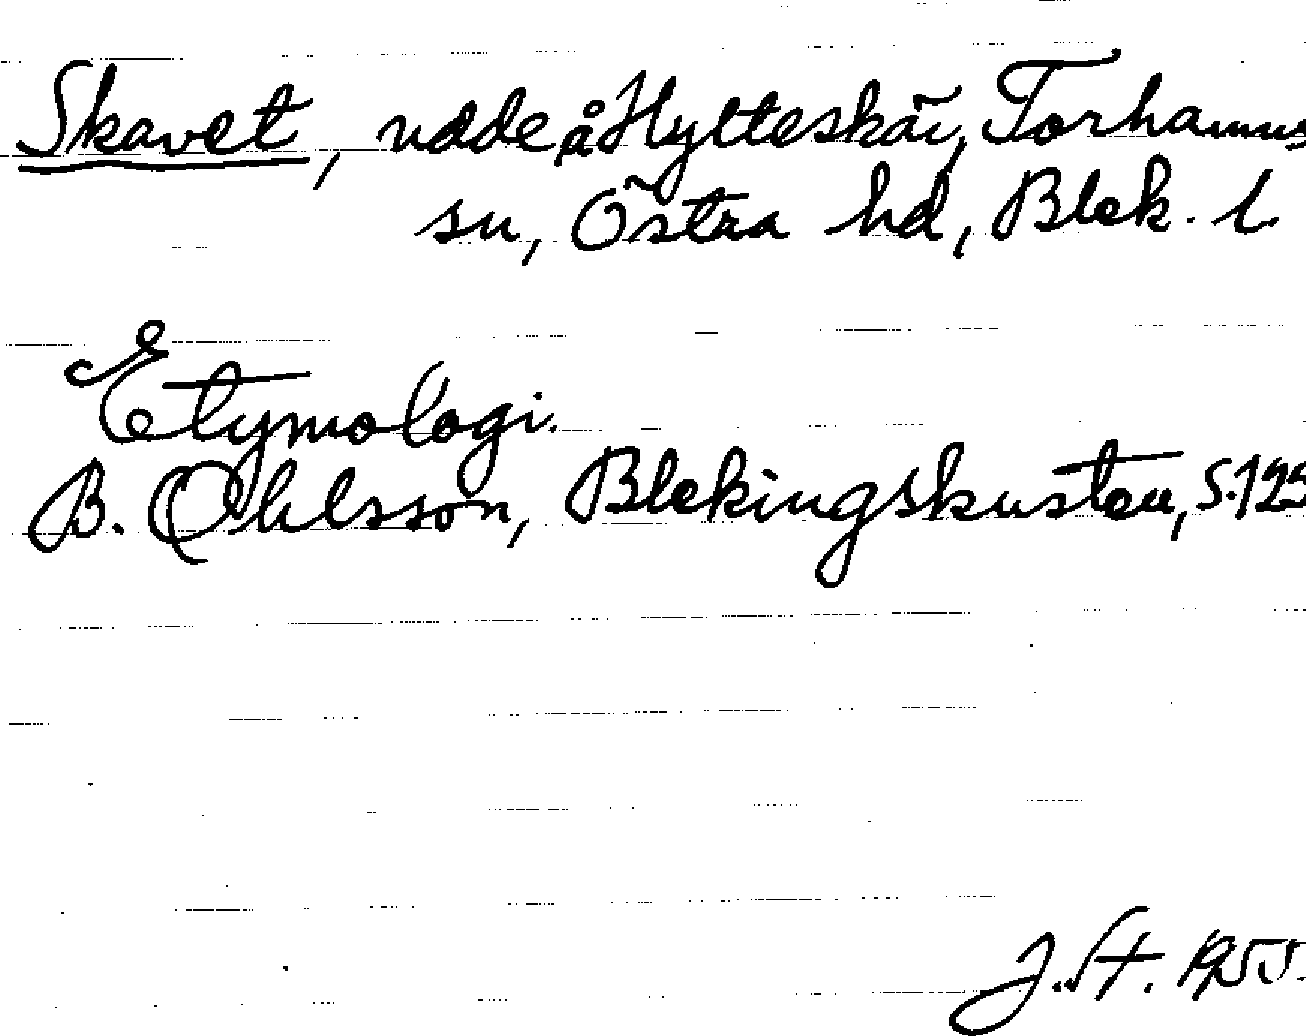 Skavet, udde å Hylteskär, Torhamns
sn, Östra hd, Blek. l.
Etymologi.
B. Ohlsson, Blekingskusten, s. 125
J. St. 1955.